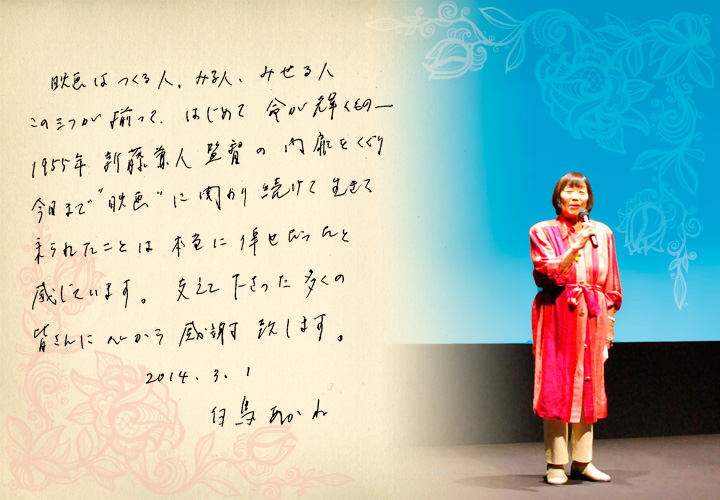 映画はつくる人、みる人、みせる人
この三つが揃って、はじめて命が輝くもの―
1955年 新藤兼人監督の内扉をくぐり
今日まで“映画”に関わり続けて生きて
来られたことは本当に倖せだったと
感じています。支えて下さった多くの
皆さんに心から感謝致します。
2014.3.1
白鳥あかね